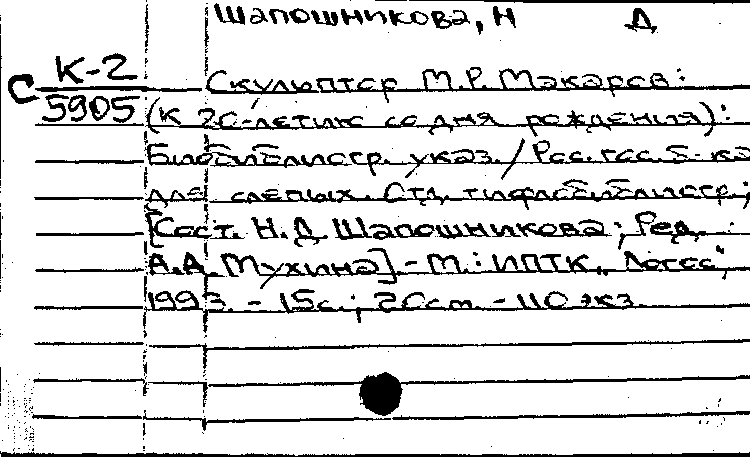 Шапошникова, Н Д
С К-2
5905
Скульптор М.Р. Макаров:
(К 20-летию со дня рождения):
Биобиблиогр. указ. / Рос. гос. б-ка
для слепых. Отд. тифлобиблиогр.;
[Сост. Н.Д. Шапошникова; Ред.
А.А. Мухина]. - М.: ИПТК „Логос",
1993. - 15с.; 20см. - 110 экз.